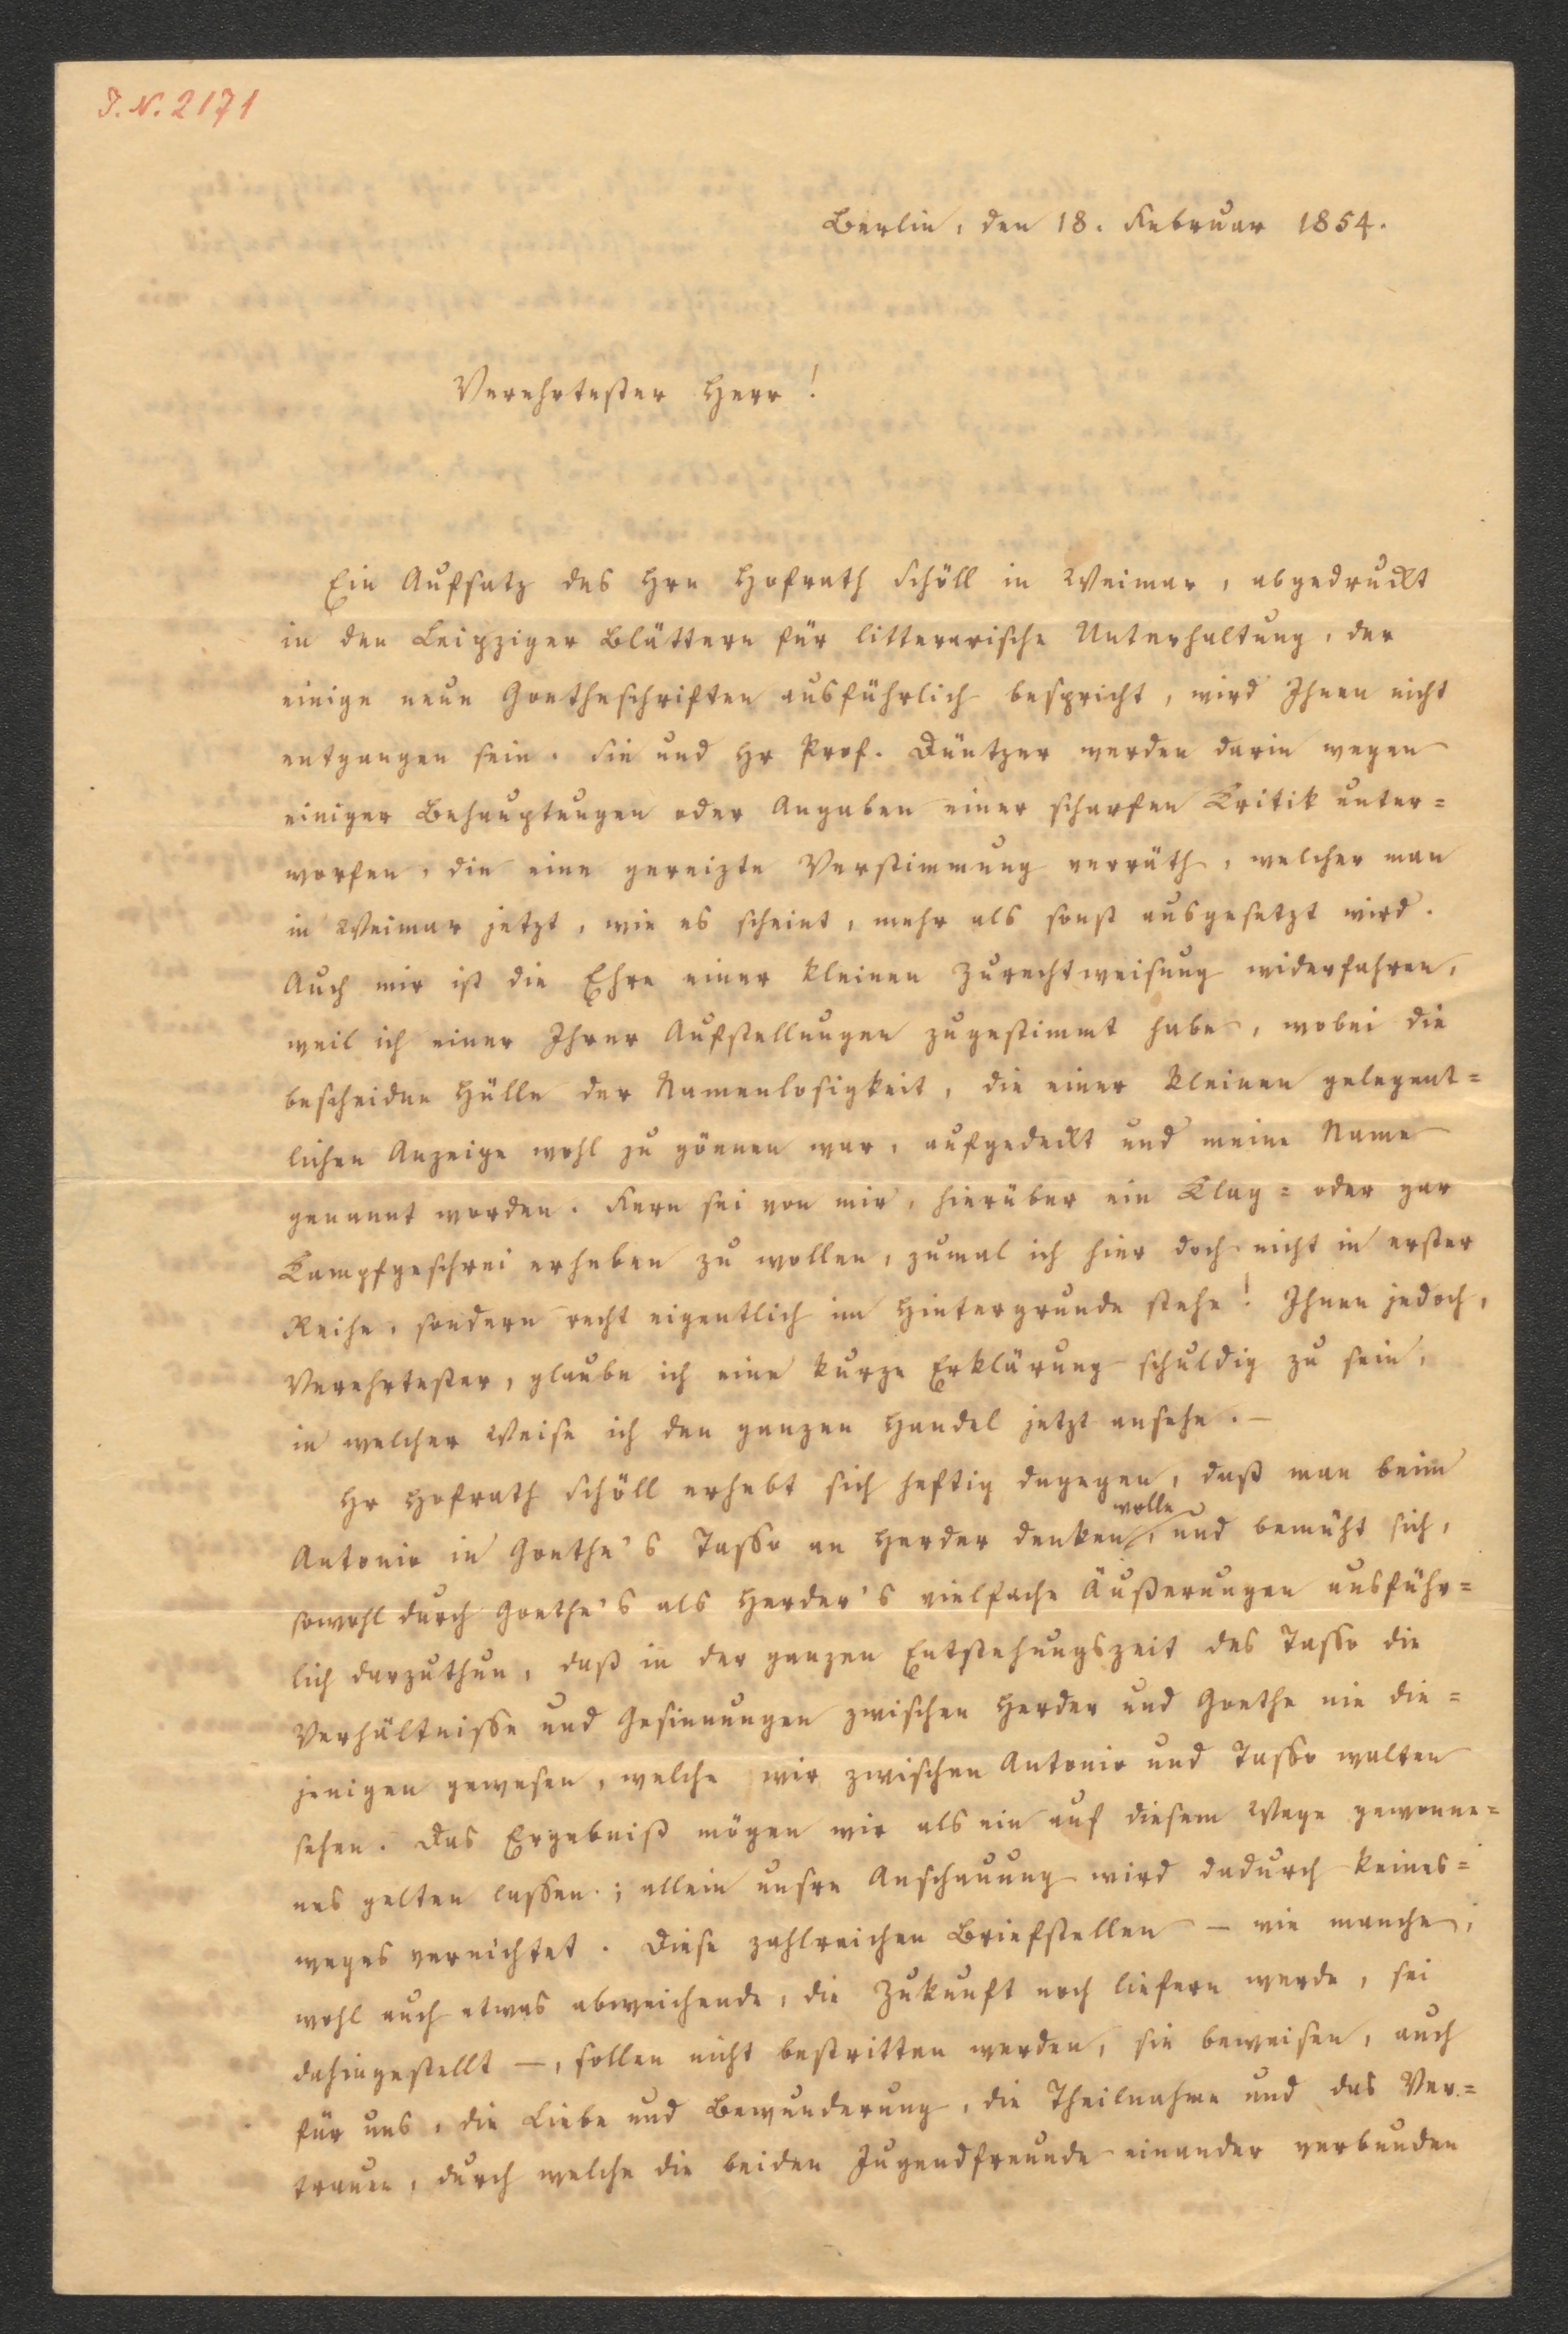 J. N. 2171
Berlin, den 18. Februar 1854.
Verehrtester Herr!
Ein Aufsatz des Hrn Hofrath Schöll in Weimar, abgedruckt
in den Leipziger Blättern für litterarische Unterhaltung, der
einige neue Goetheschriften ausführlich bespricht, wird Ihnen nicht
entgangen sein. Sie und Hr Prof. Düntzer werden darin wegen
einiger Behauptungen oder Angaben einer scharfen Kritik unter=
worfen, die eine gereizte Verstimmung verräth, welcher man
in Weimar jetzt, wie es scheint, mehr als sonst ausgesetzt wird.
Auch mir ist die Ehre einer kleinen Zurechtweisung widerfahren,
weil ich einer Ihrer Aufstellungen zugestimmt habe, wobei die
bescheidne Hülle der Namenlosigkeit, die einer kleinen gelegent=
lichen Anzeige wohl zu gönnen war, aufgedeckt und meine Name
genannt worden. Fern sei von mir, hierüber ein Klag= oder gar
Kampfgeschrei erheben zu wollen, zumal ich hier doch nicht in erster
Reihe, sondern recht eigentlich im Hintergrunde stehe! Ihnen jedoch,
Verehrtester, glaube ich eine kurze Erklärung schuldig zu sein,
in welcher Weise ich den ganzen Handel jetzt ansehe. —
Hr Hofrath Schöll erhebt sich heftig dagegen, daß man beim
wolle
Antonio in Goethe's Tasso an Herder denken, und bemüht sich,
sowohl durch Goethe's als Herder's vielfache Äußerungen ausführ=
lich darzuthun, daß in der ganzen Entstehungszeit des Tasso die
Verhältnisse und Gesinnungen zwischen Herder und Goethe nie die=
jenigen gewesen, welche wir zwischen Antonio und Tasso walten
sehen. Das Ergebniß mögen wir als ein auf diesem Wege gewonne=
nes gelten lassen; allein unsre Anschauung wird dadurch keines=
weges vernichtet. Diese zahlreichen Briefstellen — wie manche,
wohl auch etwas abweichende, die Zukunft noch liefern werde, sei
dahingestellt —, sollen nicht bestritten werden, sie beweisen, auch
für uns, die Liebe und Bewunderung, die Theilnahme und das Ver=
trauen, durch welche die beiden Jugendfreunde einander verbunden